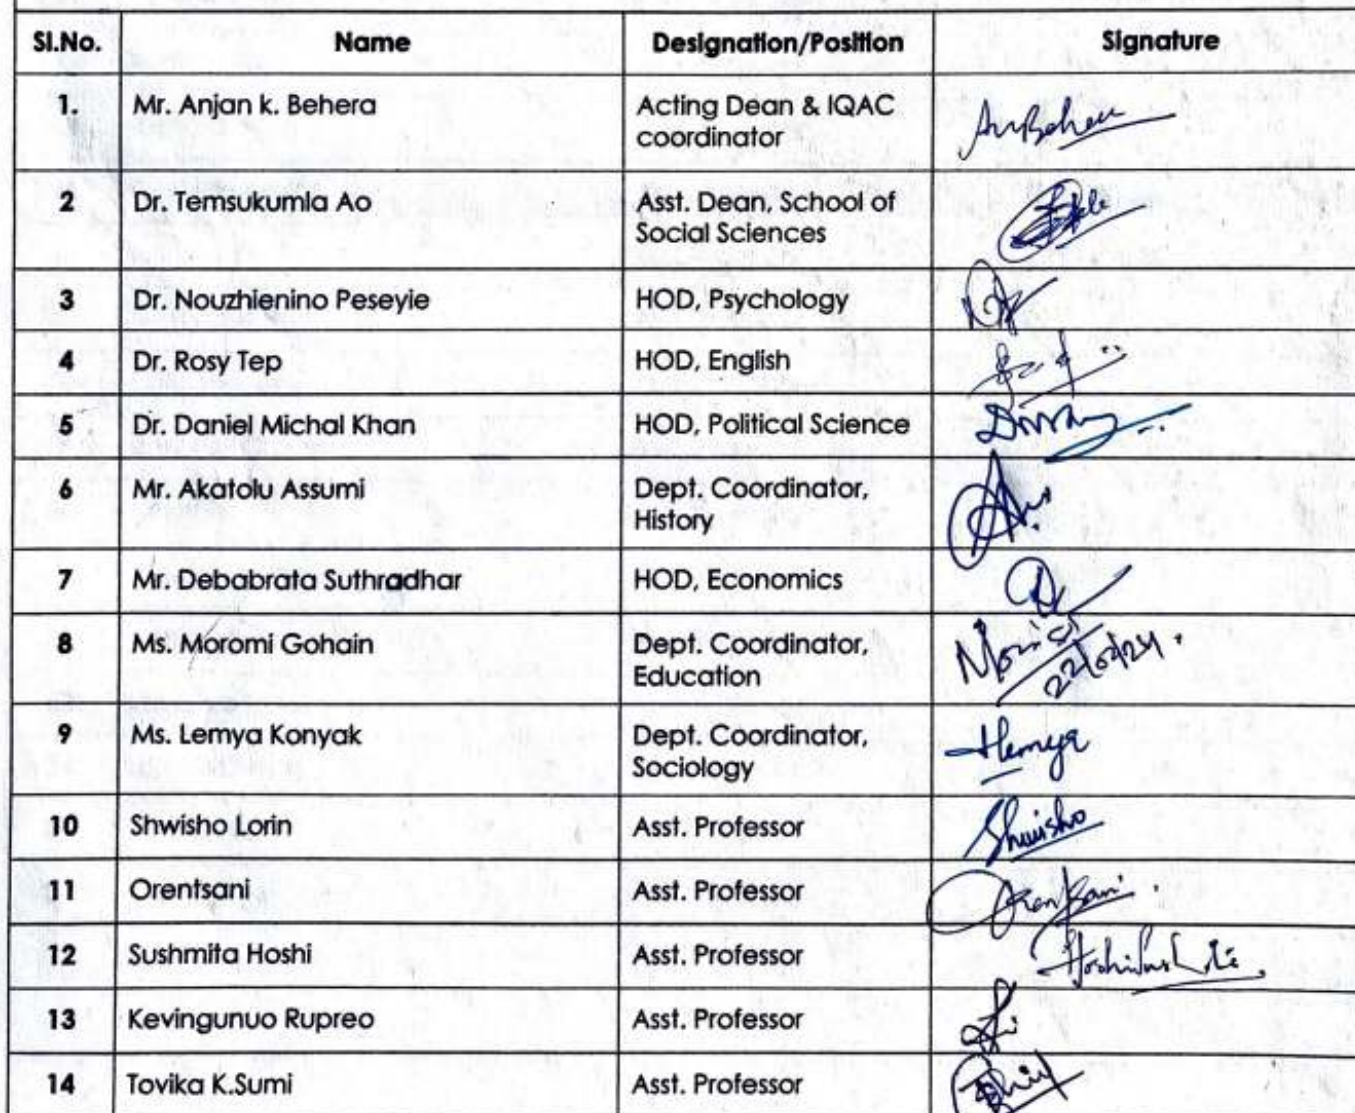 Sl.No. Name Designation/Position Signature
1. Mr. Anjan k. Behera Acting Dean & IQAC
coordinator
2 Dr. Temsukumla Ao Asst. Dean, School of
Social Sciences
3 Dr. Nouzhienino Peseyie HOD, Psychology
4 Dr. Rosy Tep HOD, English
5 Dr. Daniel Michal Khan HOD, Political Science
6 Mr. Akatolu Assumi Dept. Coordinator,
History
7 Mr. Debabrata Suthradhar HOD, Economics
8 Ms. Moromi Gohain Dept. Coordinator,
Education
9 Ms. Lemya Konyak Dept. Coordinator, Lemya
Sociology
10 Shwisho Lorin Asst. Professor Shwisho
11 Orentsani Asst. Professor
12 Sushmita Hoshi Asst. Professor
13 Kevingunuo Rupreo Asst. Professor
14 Tovika K.Sumi Asst. Professor